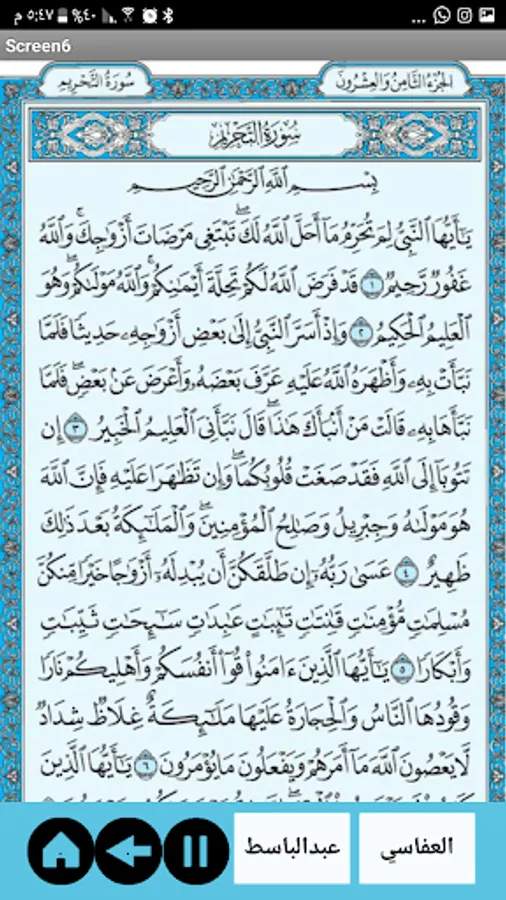 ٥:٤٧ م ٪٤٠
Screen6
الجزء الثامن والعشرون
سورة التحريم
سُورَةُ التَّحْرِيمِ
بِسْمِ اللَّهِ الرَّحْمَٰنِ الرَّحِيمِ
يَٰٓأَيُّهَا النَّبِيُّ لِمَ تُحَرِّمُ مَآ أَحَلَّ اللَّهُ لَكَ ۖ تَبْتَغِي مَرْضَاتَ أَزْوَٰجِكَ ۚ وَاللَّهُ
غَفُورٌ رَّحِيمٌ ١ قَدْ فَرَضَ اللَّهُ لَكُمْ تَحِلَّةَ أَيْمَٰنِكُمْ ۚ وَاللَّهُ مَوْلَىٰكُمْ ۖ وَهُوَ
الْعَلِيمُ الْحَكِيمُ ٢ وَإِذْ أَسَرَّ النَّبِيُّ إِلَىٰ بَعْضِ أَزْوَٰجِهِۦ حَدِيثًا فَلَمَّا
نَبَّأَتْ بِهِۦ وَأَظْهَرَهُ اللَّهُ عَلَيْهِ عَرَّفَ بَعْضَهُۥ وَأَعْرَضَ عَنۢ بَعْضٍ ۖ فَلَمَّا
نَبَّأَهَا بِهِۦ قَالَتْ مَنْ أَنۢبَأَكَ هَٰذَا ۖ قَالَ نَبَّأَنِيَ الْعَلِيمُ الْخَبِيرُ ٣ إِن
تَتُوبَآ إِلَى اللَّهِ فَقَدْ صَغَتْ قُلُوبُكُمَا ۖ وَإِن تَظَٰهَرَا عَلَيْهِ فَإِنَّ اللَّهَ
هُوَ مَوْلَىٰهُ وَجِبْرِيلُ وَصَٰلِحُ الْمُؤْمِنِينَ ۖ وَالْمَلَٰٓئِكَةُ بَعْدَ ذَٰلِكَ
ظَهِيرٌ ٤ عَسَىٰ رَبُّهُۥٓ إِن طَلَّقَكُنَّ أَن يُبْدِلَهُۥٓ أَزْوَٰجًا خَيْرًا مِّنكُنَّ
مُسْلِمَٰتٍ مُّؤْمِنَٰتٍ قَٰنِتَٰتٍ تَٰٓئِبَٰتٍ عَٰبِدَٰتٍ سَٰٓئِحَٰتٍ ثَيِّبَٰتٍ
وَأَبْكَارًا ٥ يَٰٓأَيُّهَا الَّذِينَ ءَامَنُوا قُوٓا أَنفُسَكُمْ وَأَهْلِيكُمْ نَارًا
وَقُودُهَا النَّاسُ وَالْحِجَارَةُ عَلَيْهَا مَلَٰٓئِكَةٌ غِلَاظٌ شِدَادٌ
لَّا يَعْصُونَ اللَّهَ مَآ أَمَرَهُمْ وَيَفْعَلُونَ مَا يُؤْمَرُونَ ٦ يَٰٓأَيُّهَا الَّذِينَ
العفاسي
عبدالباسط